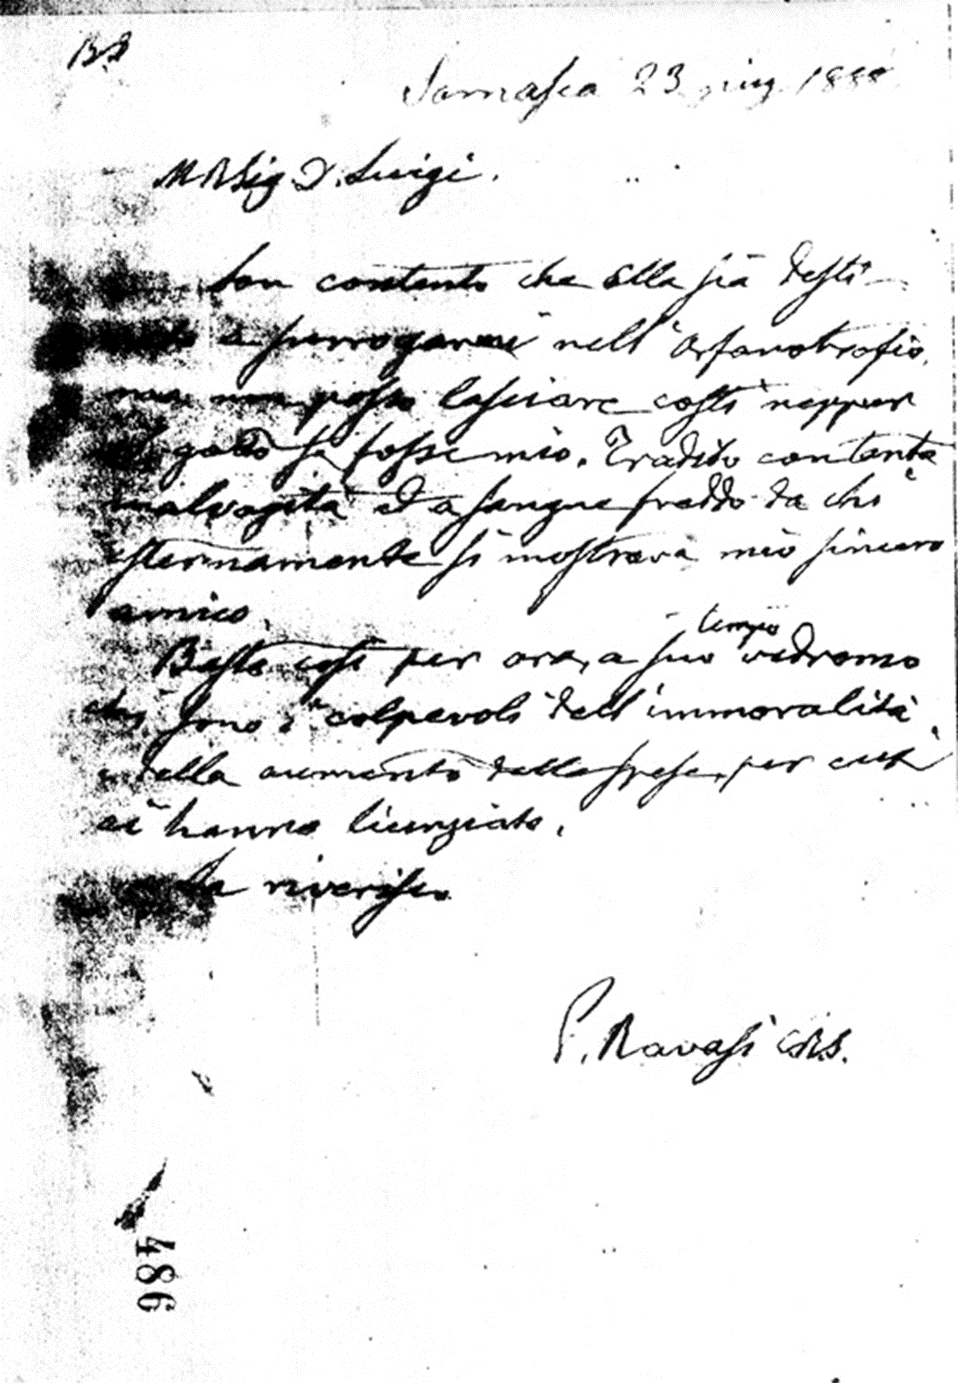 B.D.
Somasca 23 giug 1888
M R Sig. D. Luigi.
Son contento che Ella sia desti-
a surrogarmi nell'Orfanotrofio,
ma non posso lasciare costì neppur
gatto se fosse mio. Tradito con tanta
malvagità ed a sangue freddo da chi
esternamente si mostrava mio sincero
amico.
Basta così per ora, a suo tempo vedremo
chi sono i colpevoli dell'immoralità
e della aumento delle spese, per cui
ci hanno licenziato.
La riverisco
P. Ravasi CRS.
486